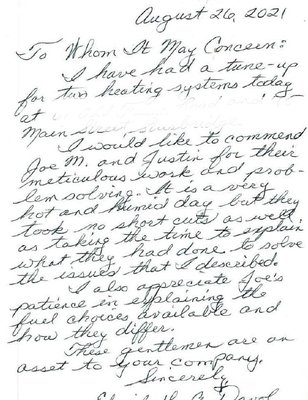 August 26, 2021
To Whom It May Concern:
I have had a tune-up
for two heating systems today
at
Main
I would like to commend
Joe M. and Justin for their
meticulous work and prob-
lem solving. It is a very
hot and humid day but they
took no short cuts as well
as taking the time to explain
what they had done to solve
the issues that I described.
I also appreciate Joe's
patience in explaining the
fuel choices available and
how they differ.
These gentlemen are an
asset to your company.
Sincerely,